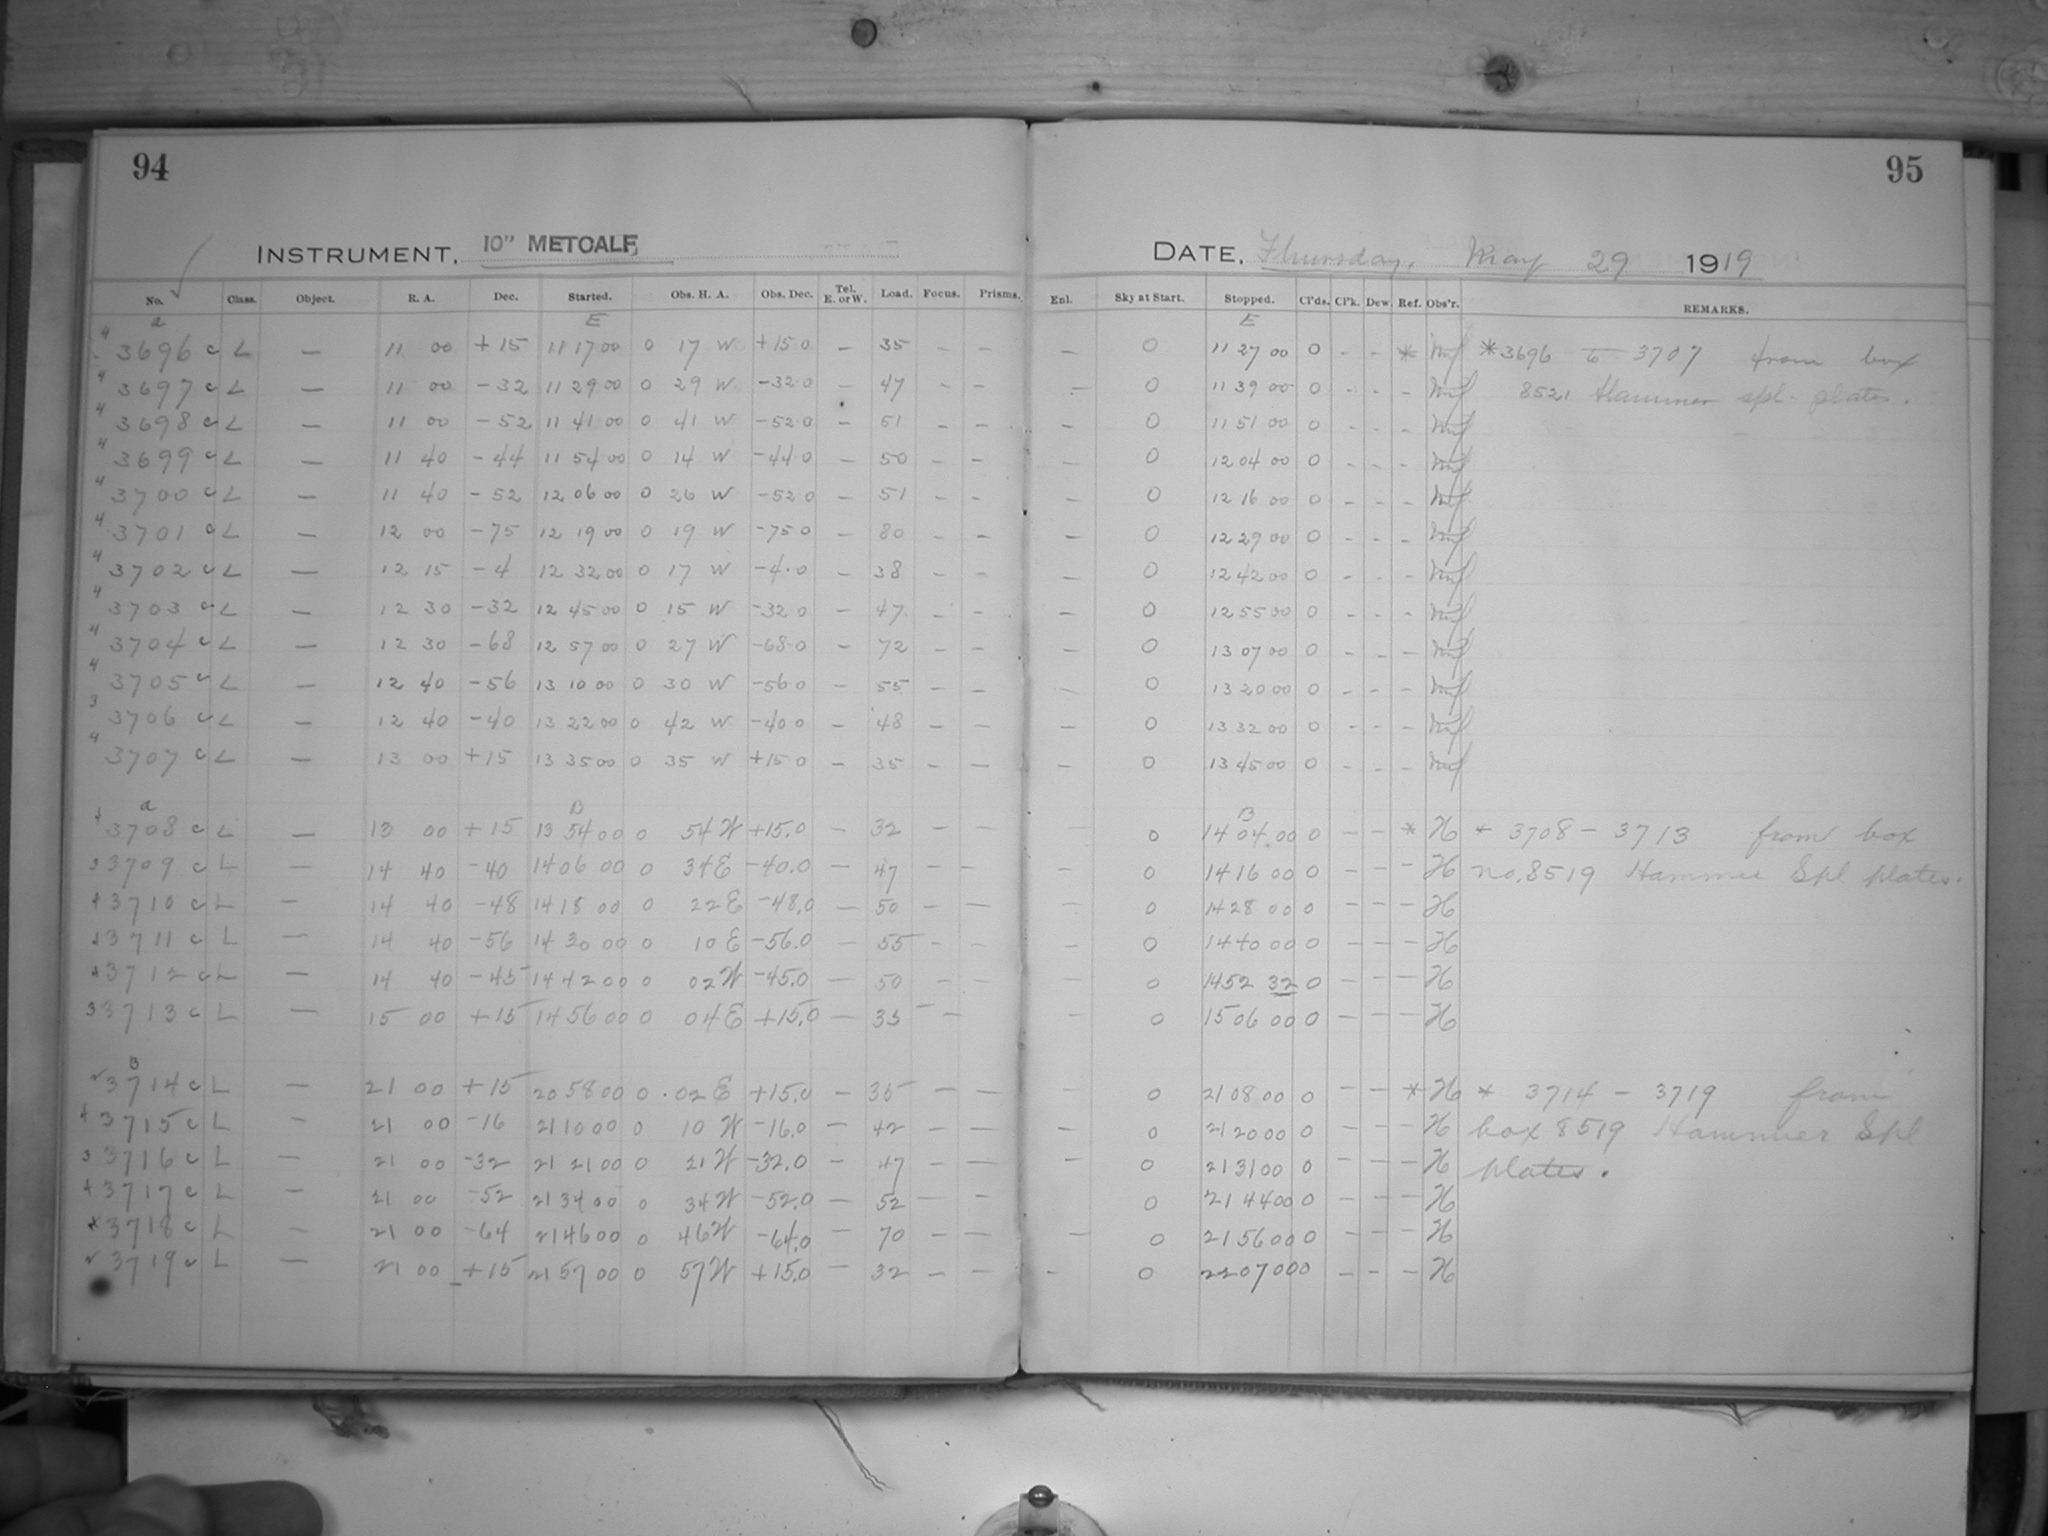 94
INSTRUMENT, 10" METCALF
No. Class. Object. R. A. Dec. Started. Obs. H. A. Obs. Dec. Tel. E. or W. Load. Focus. Prisms.
a E
4 3696 c L — 11 00 +15 11 17 00 0 17 W +15 0 — 35 — —
4 3697 c L — 11 00 -32 11 29 00 0 29 W -32 0 — 47 — —
4 3698 c L — 11 00 -52 11 41 00 0 41 W -52 0 — 51 — —
4 3699 c L — 11 40 -44 11 54 00 0 14 W -44 0 — 50 — —
4 3700 c L — 11 40 -52 12 06 00 0 26 W -52 0 — 51 — —
4 3701 c L — 12 00 -75 12 19 00 0 19 W -75 0 — 80 — —
4 3702 c L — 12 15 -4 12 32 00 0 17 W -4.0 — 38 — —
4 3703 c L — 12 30 -32 12 45 00 0 15 W -32 0 — 47 — —
4 3704 c L — 12 30 -68 12 57 00 0 27 W -68 0 — 72 — —
4 3705 c L — 12 40 -56 13 10 00 0 30 W -56 0 — 55 — —
3 3706 c L — 12 40 -40 13 22 00 0 42 W -40 0 — 48 — —
4 3707 c L — 13 00 +15 13 35 00 0 35 W +15 0 — 35 — —
a B
4 3708 c L — 13 00 +15 13 54 00 0 54 W +15.0 — 32 — —
3 3709 c L — 14 40 -40 14 06 00 0 34 E -40.0 — 47 — —
4 3710 c L — 14 40 -48 14 18 00 0 22 E -48.0 — 50 — —
3711 c L — 14 40 -56 14 30 00 0 10 E -56.0 — 55 — —
3712 c L — 14 40 -45 14 42 00 0 02 W -45.0 — 50 — —
3 3713 c L — 15 00 +15 14 56 00 0 04 E +15.0 — 35 — —
B
3714 c L — 21 00 +15 20 58 00 0 02 E +15.0 — 35 — —
4 3715 c L — 21 00 -16 21 10 00 0 10 W -16.0 — 42 — —
3 3716 c L — 21 00 -32 21 21 00 0 21 W -32.0 — 47 — —
4 3717 c L — 21 00 -52 21 34 00 0 34 W -52.0 — 52 — —
3718 c L — 21 00 -64 21 46 00 0 46 W -64.0 — 70 — —
3719 c L — 21 00 +15 21 57 00 0 57 W +15.0 — 32 — —
95
DATE, Thursday, May 29 1919
Enl. Sky at Start. Stopped. Cl'ds. Cl'k. Dew. Ref. Obs'r. REMARKS.
E
— 0 11 27 00 0 - - * *3696 to 3707 from box
— 0 11 39 00 0 - - - 8521 Hammer spl. plates.
— 0 11 51 00 0 - - -
— 0 12 04 00 0 - - -
— 0 12 16 00 0 - - -
— 0 12 29 00 0 - - -
— 0 12 42 00 0 - - -
— 0 12 55 00 0 - - -
— 0 13 07 00 0 - - -
— 0 13 20 00 0 - - -
— 0 13 32 00 0 - - -
— 0 13 45 00 0 - - -
B
— 0 14 04.00 0 — — * H * 3708 - 3713 from box
— 0 14 16 00 0 — — — H no. 8519 Hammer Spl plates.
— 0 14 28 00 0 — — — H
— 0 14 40 00 0 — — — H
— 0 14 52 32 0 — — — H
— 0 15 06 00 0 — — — H
— 0 21 08 00 0 — — * H * 3714 - 3719 from
— 0 21 20 00 0 — — — H box 8519 Hammer Spl
— 0 21 31 00 0 — — — H plates.
0 21 44 00 0 — — — H
— 0 21 56 00 0 — — — H
— 0 22 07 00 0 — — — H